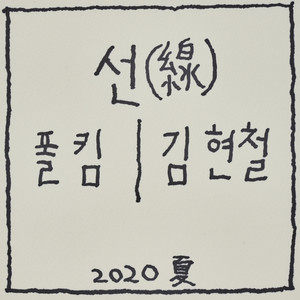 선(線)
폴킴 | 김현철
2020 夏